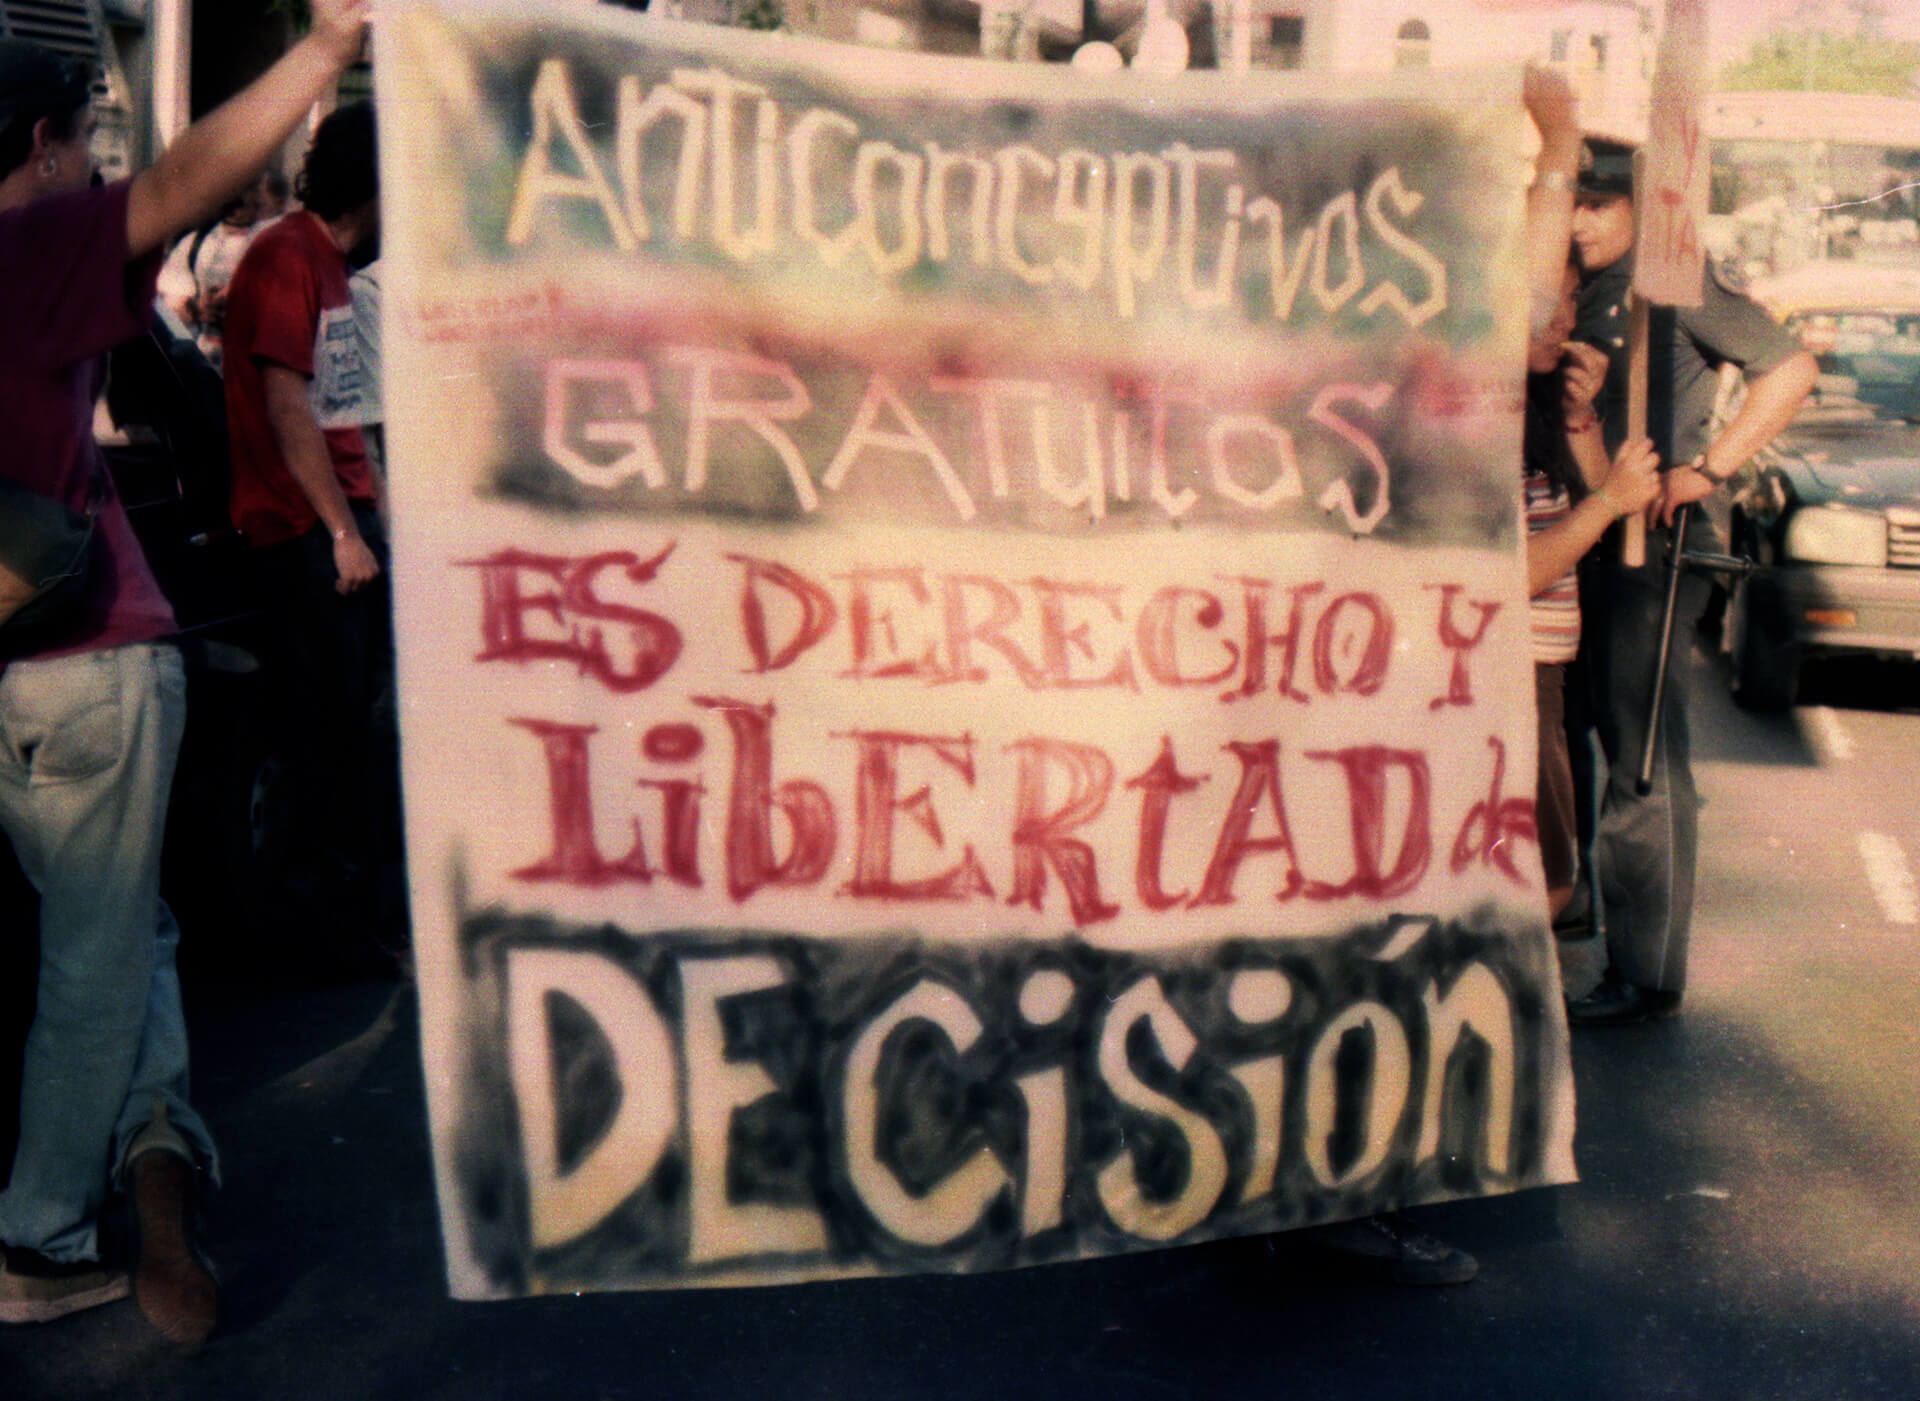 AnTiconcepTivos
GRATuitoS
ES DERECHO Y
LibERtAD de
DECiSión